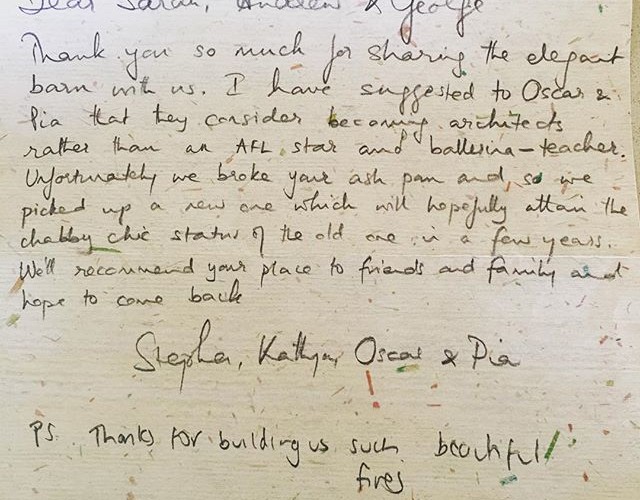 Dear Sarah, Andrew & George
Thank you so much for sharing the elegant
barn with us. I have suggested to Oscar &
Pia that they consider becoming architects
rather than an AFL star and ballerina-teacher.
Unfortunately we broke your ash pan and, so we
picked up a new one which will hopefully attain the
chabby chic status of the old one in a few years.
We'll recommend your place to friends and family and
hope to come back
Oscar & Pia
PS. Thanks for building us such beautiful
fires